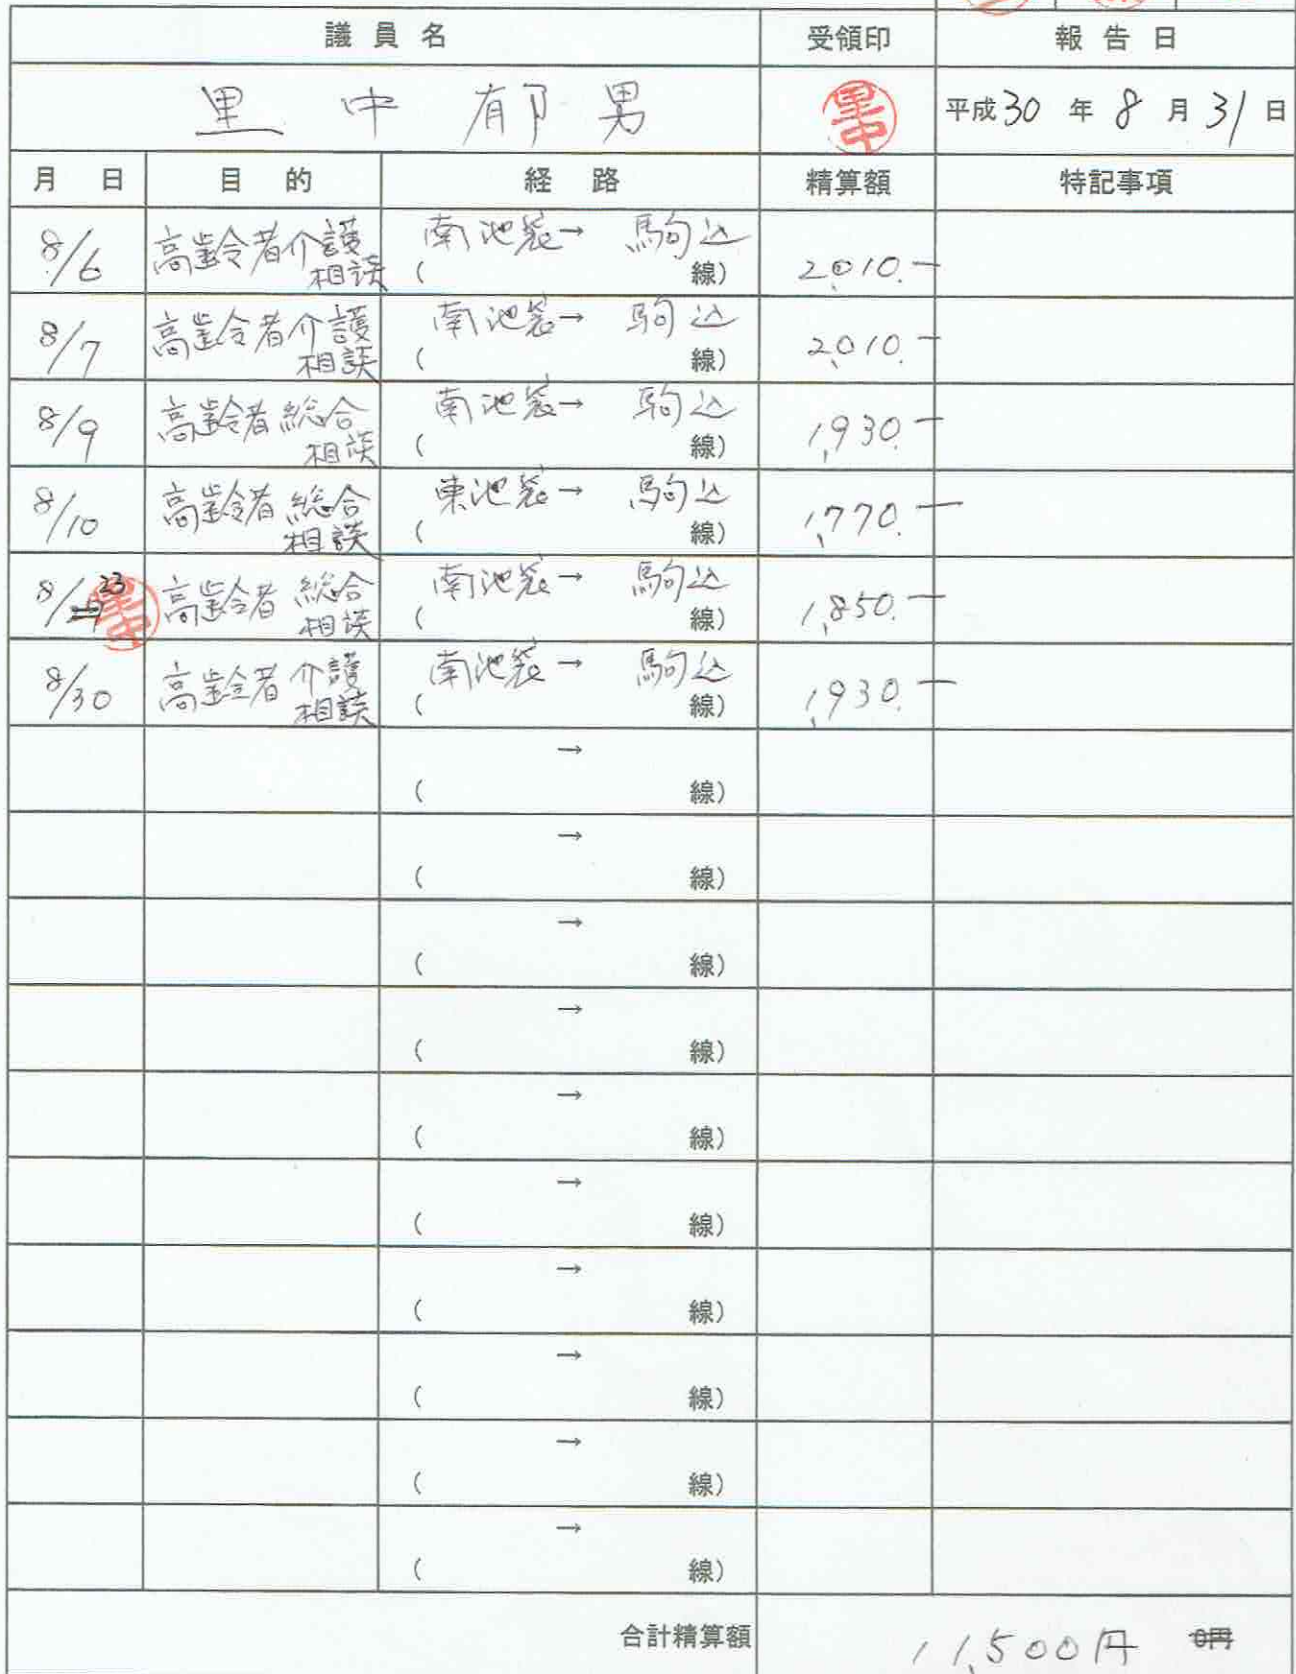 議員名 受領印 報告日
里中郁男 里中 平成30年8月31日
月日 目的 経路 精算額 特記事項
8/6 高齢者介護 南池袋→駒込 2,010.-
相談 ( 線)
8/7 高齢者介護 南池袋→駒込 2,010.-
相談 ( 線)
8/9 高齢者総合 南池袋→駒込 1,930.-
相談 ( 線)
8/10 高齢者総合 東池袋→駒込 1,770.-
相談 ( 線)
8/23 里中 高齢者総合 南池袋→駒込 1,850.-
相談 ( 線)
8/30 高齢者介護 南池袋→駒込 1,930.-
相談 ( 線)
→
( 線)
→
( 線)
→
( 線)
→
( 線)
→
( 線)
→
( 線)
→
( 線)
→
( 線)
→
( 線)
→
( 線)
合計精算額 11,500円 0円